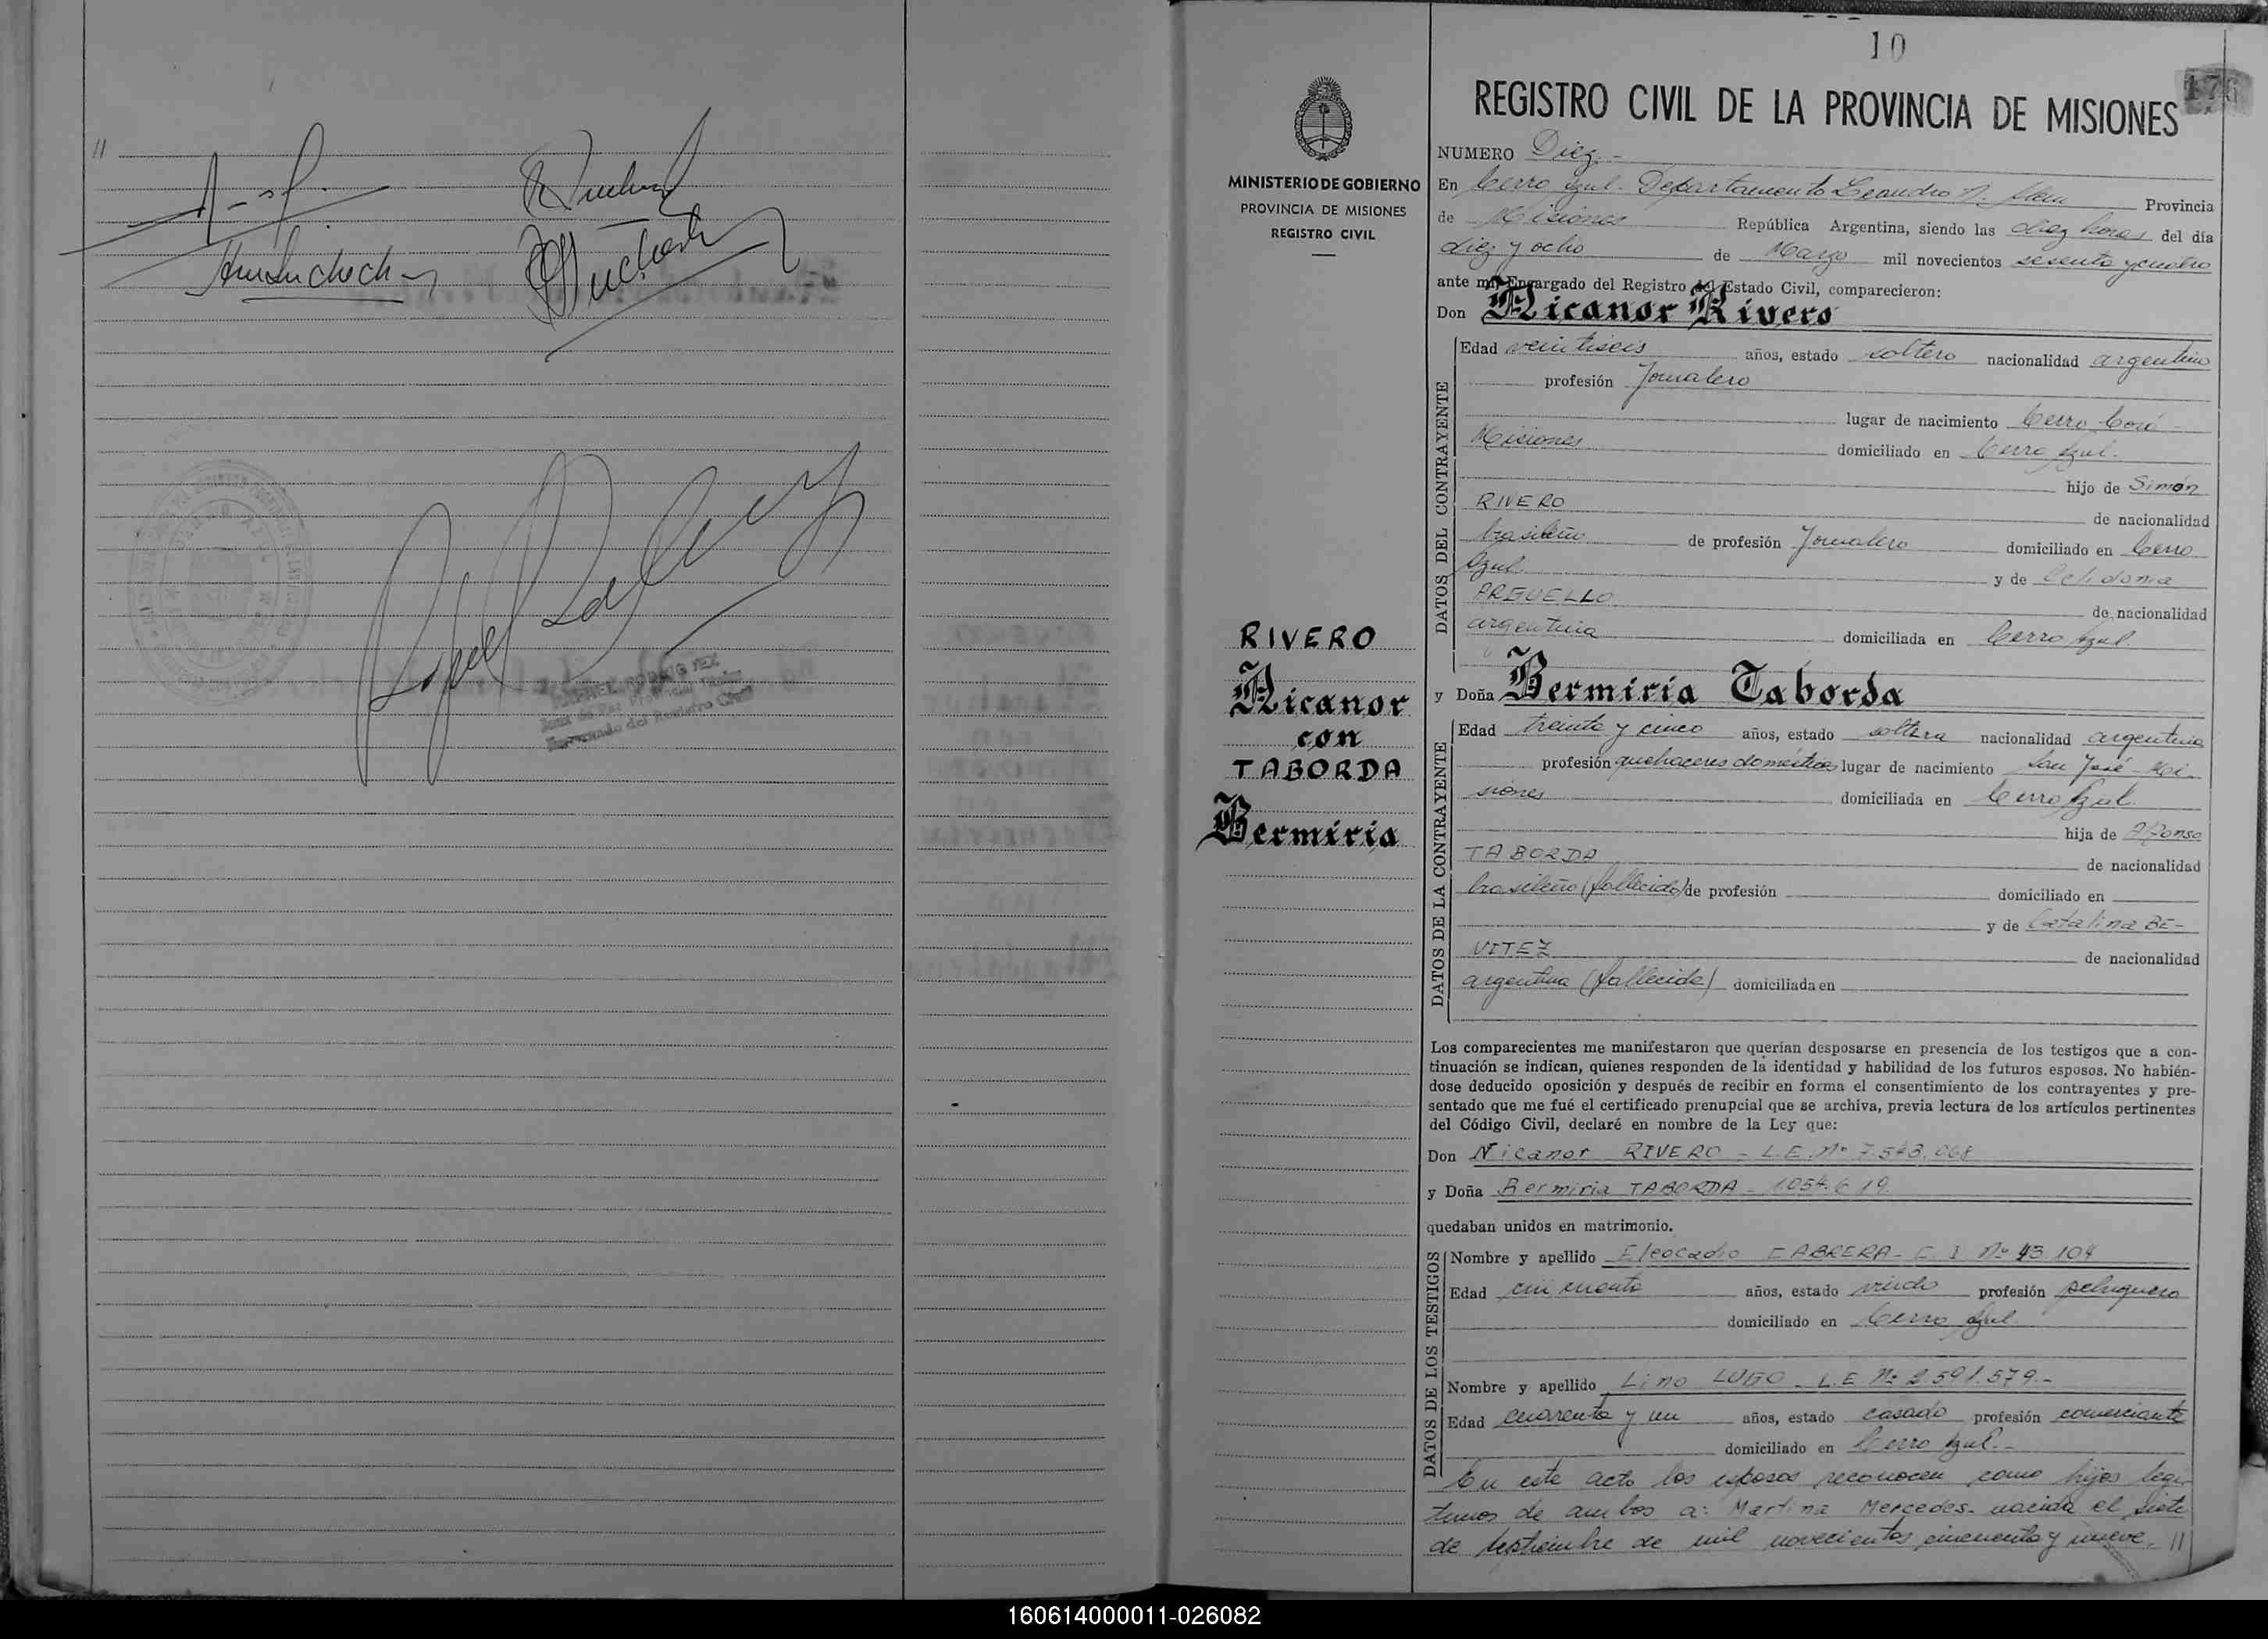 10
176
REGISTRO CIVIL DE LA PROVINCIA DE MISIONES
MINISTERIO DE GOBIERNO
PROVINCIA DE MISIONES
REGISTRO CIVIL
RIVERO
Nicanor
con
TABORDA
Bermiria
NUMERO Diez.-
En Cerro Azul - Departamento Leandro N. Alem Provincia
de Misiones República Argentina, siendo las diez horas del día
diez y ocho de Marzo mil novecientos sesenta y cuatro
ante mí, Encargado del Registro del Estado Civil, comparecieron:
Don Nicanor Rivero
DATOS DEL CONTRAYENTE
Edad veintiseis años, estado soltero nacionalidad argentino
profesión Jornalero
lugar de nacimiento Cerro Corá -
Misiones domiciliado en Cerro Azul.
hijo de Simón
RIVERO de nacionalidad
brasileño de profesión Jornalero domiciliado en Cerro
Azul y de Celidonia
ARGUELLO de nacionalidad
argentina domiciliada en Cerro Azul.
y Doña Bermiria Taborda
DATOS DE LA CONTRAYENTE
Edad treinta y cinco años, estado soltera nacionalidad argentina
profesión quehaceres domésticos lugar de nacimiento San José - Mi-
siones domiciliada en Cerro Azul.
hija de Alfonso
TABORDA de nacionalidad
brasileño (fallecido) de profesión domiciliado en
y de Catalina BE-
VITEZ de nacionalidad
argentina (fallecida) domiciliada en
Los comparecientes me manifestaron que querían desposarse en presencia de los testigos que a con-
tinuación se indican, quienes responden de la identidad y habilidad de los futuros esposos. No habién-
dose deducido oposición y después de recibir en forma el consentimiento de los contrayentes y pre-
sentado que me fué el certificado prenupcial que se archiva, previa lectura de los artículos pertinentes
del Código Civil, declaré en nombre de la Ley que:
Don Nicanor RIVERO - L.E. Nº 7.543.068
y Doña Bermiria TABORDA - 1054.619.
quedaban unidos en matrimonio.
DATOS DE LOS TESTIGOS
Nombre y apellido Eleocadio CABRERA - C. I Nº 43 104
Edad cincuenta años, estado viudo profesión peluquero
domiciliado en Cerro Azul.
Nombre y apellido Lino LUGO - L.E Nº 2 591.579.-
Edad cuarenta y un años, estado casado profesión comerciante
domiciliado en Cerro Azul.-
En este acto los esposos reconocen como hijos legí-
timos de ambos a: Martina Mercedes - nacida el siete
de septiembre de mil novecientos cincuenta y nueve. //
160614000011-026082